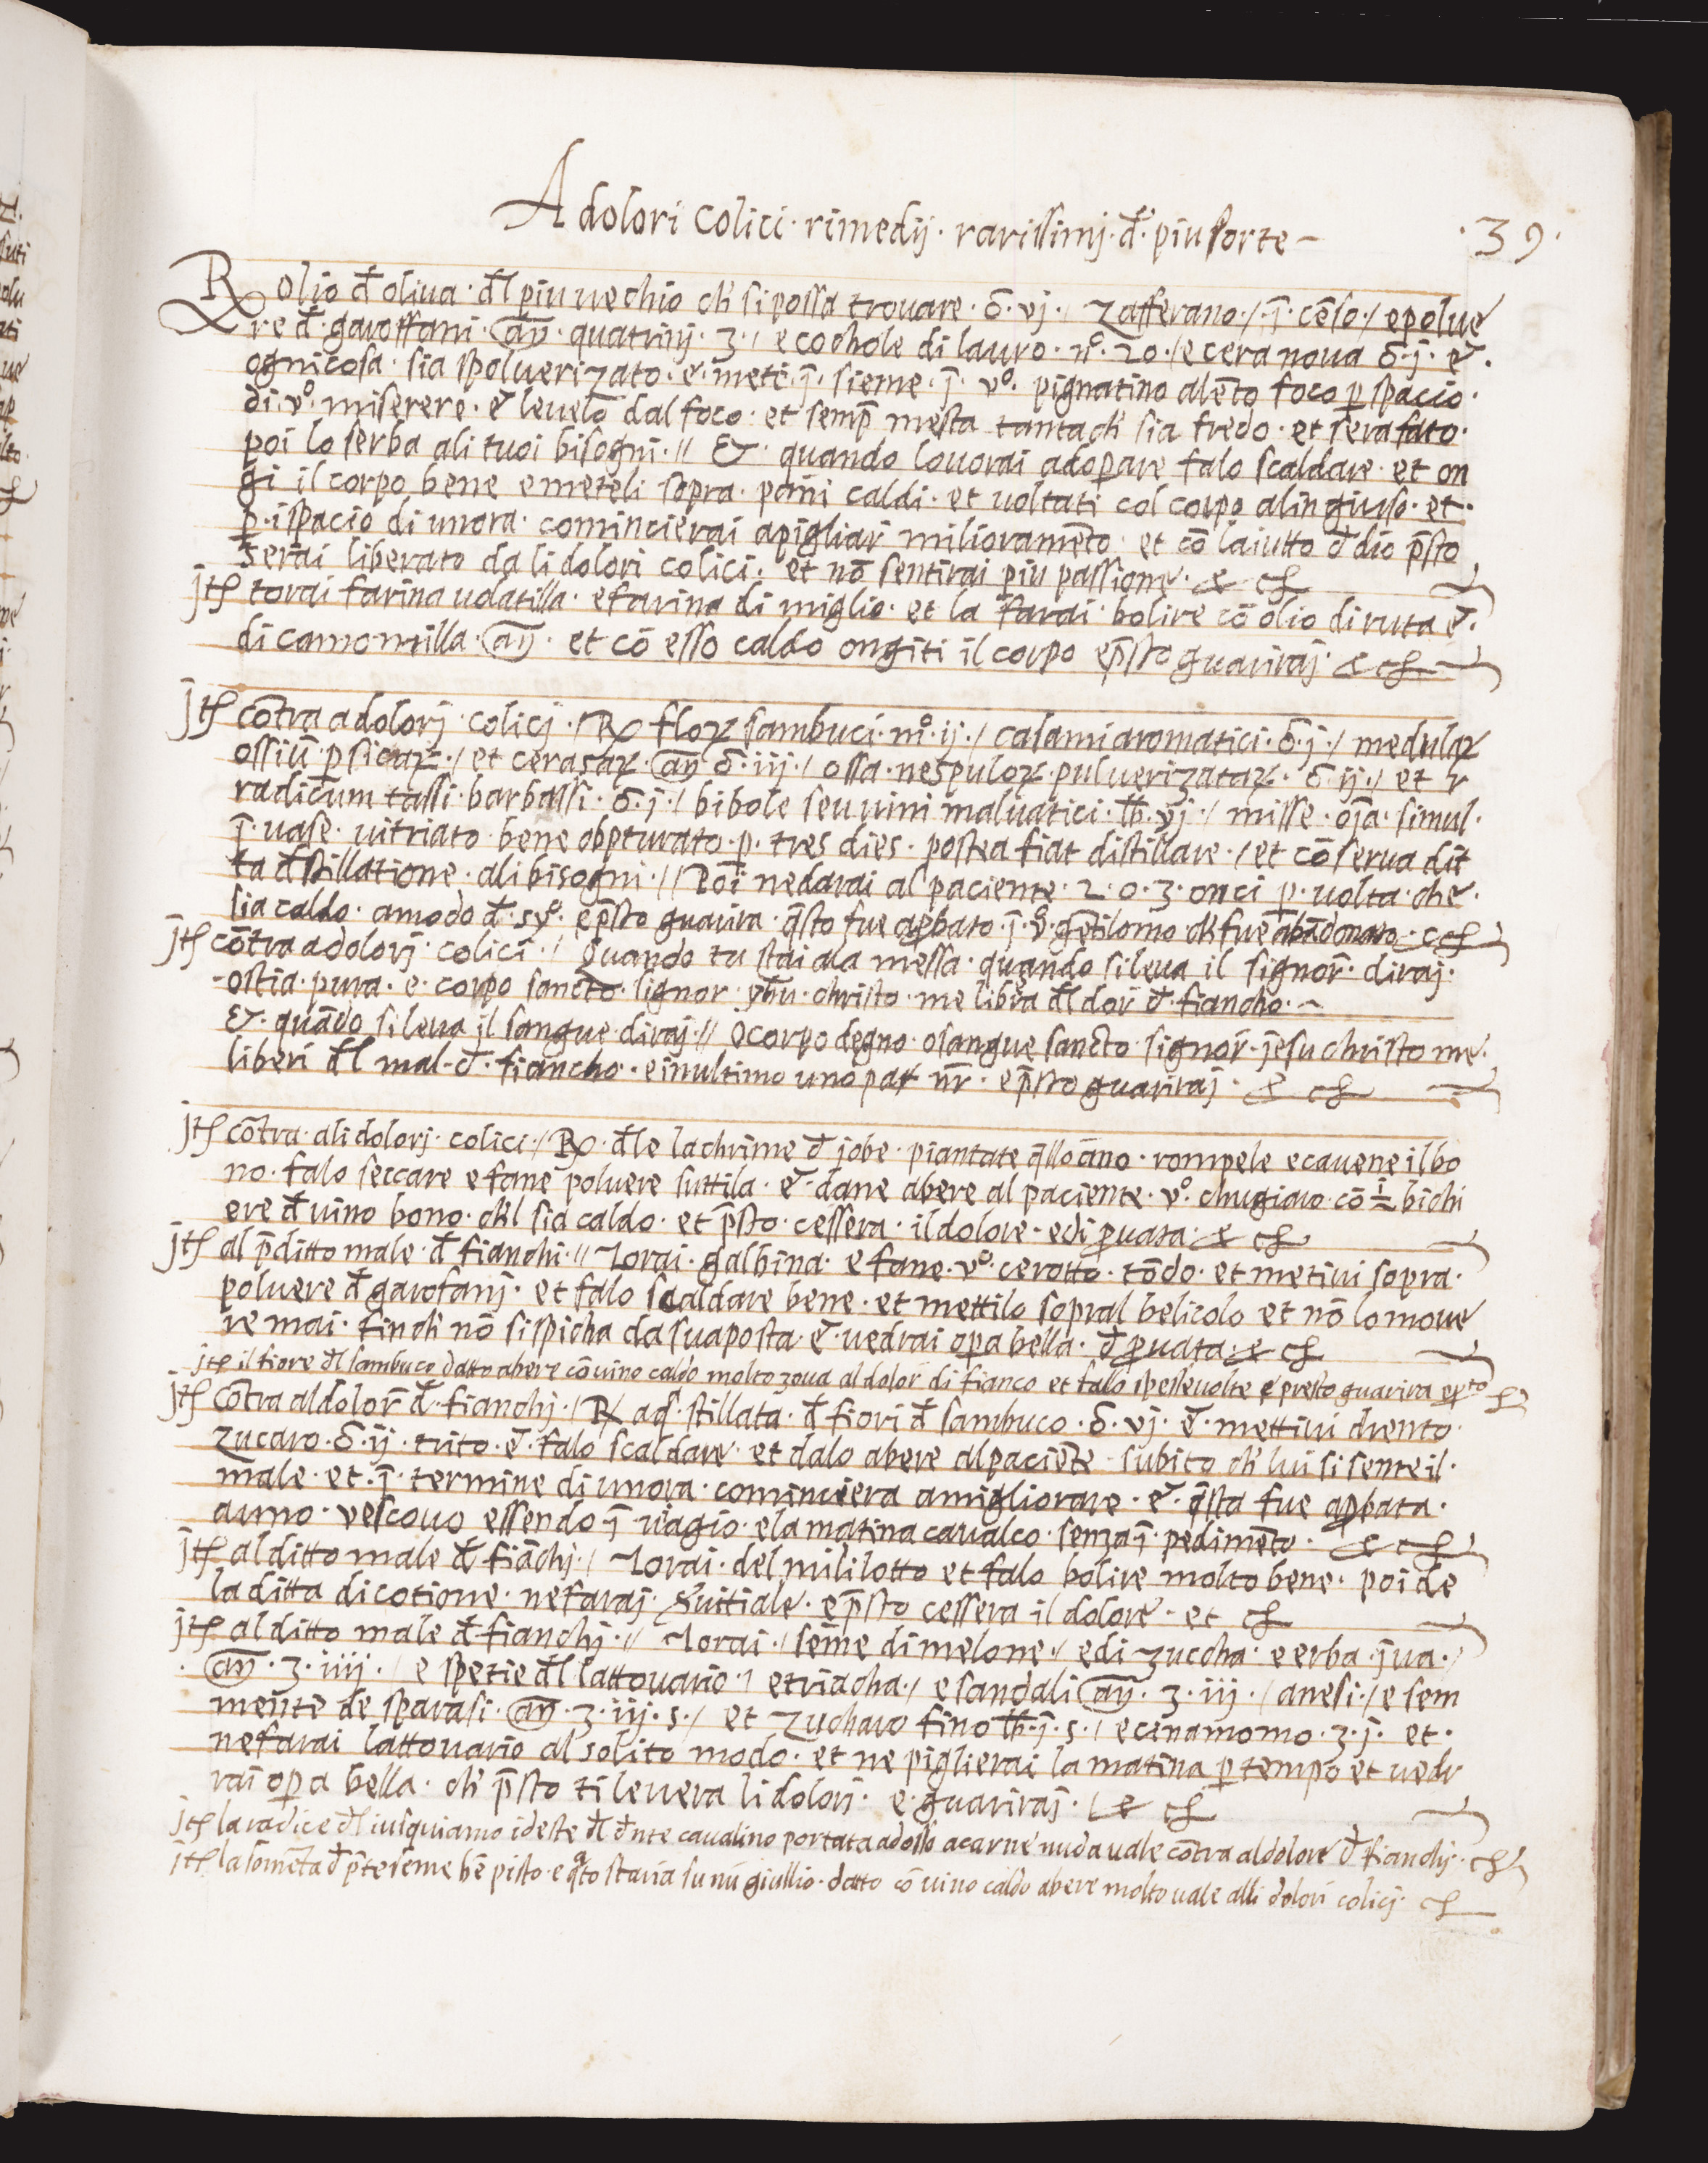 A dolori colici · rimedij · rarissimj · đ · piu sorte ~
· 39 ·
℞ olio đ oliua · đl piu uechio ch̄ si possa trouare · ℥ · vj · / zafferano · / · j̄ · cēso · / e polue
re đ · garoffani · añ · quatrinj · 3 · / e cochole di lauro · n° · 20 · / e cera noua ℥ · j · e ·
ogni cosa · sia spoluerizato · e · meti · j̄ · sieme · j̄ · v° · pignatino alēto foco ꝑ spacio ·
di · v° · miserere · e leuelo dal foco · et semp̄ mesta tanta ch̄ sia fredo · et sera fato ·
poi lo serba ali tuoi bisogni · // Et · quando louorai adoꝑare falo scaldare · et on
gi il corpo bene e meteli sopra · pañi caldi · et uoltati col corpo alingiuso · et ·
ꝑ · ispacio di unora · comincierai apigliar milioramēto · et cō laiutto đ dio p̄sto
serai liberato da li dolori colici · et nō sentirai piu passione · &
jtʒ torai farina uolatilla · e farina di miglio · et la farai · bolire cō olio di ruta e ·
di camomilla · añ · et cō esso caldo ongiti il corpo e p̄sto guariraj · &
jtʒ cōtra a dolorj · colicj · / ℞ floꝝ sambuci · m° · ij · / calami aromatici · ℥ · j · / medulaꝝ
ossiū ꝑsicaꝝ · / et cerasaꝝ · añ ℥ · iij · / ossa · nespuloꝝ · puluerizataꝝ · ℥ · ij · / et r
radicum tassi · barbassi · ℥ · j · / bibole seu uini maluatici · ℔ · vj · / misse · oīa · simul ·
j̄ · uase · uitriato · bene obpturato · ꝑ · tres dies · postea fiat distillare · / et cōserua dit
ta đstillatione · ali bisogni · // Poi ne darai al paciente · 2 · o · 3 · onci ꝑ · uolta · che ·
sia caldo · a modo đ · sy° · e p̄sto guarira · q̄sto fue aꝓbato · j̄ · v° · gētilomo ch̄ fue abādonato ·
jtʒ cōtra a dolorj · colici · / Quando tu stai ala messa · quando si leua il signor̄ · diraj ·
ostia · pura · e · corpo sancto · signor · yhū · christo · me libera đl dor đ · fiancho · ~
Et · quādo si leua il sangue · diraj · // O corpo degno · o sangue sancto · signor · jesu christo me ·
liberi đl mal · đ · fiancho · e in ultimo uno pat nr̄ · e p̄sto guariraj · &
jtʒ cōtra · ali dolorj · colici · / ℞ · đle lachrime đ jobe · piantate q̄llo āno · rompele e cauene il bo
no · falo seccare e fane poluere suttila · e · dane abere al paciente · v° · chugiaro · cō ½ bichi
ere đ uino bono · ch̄l sia caldo · et p̄sto · cessera · il dolore · ed i ꝓuata · &
jtʒ al p̄ditto male · đ fianchi · // Torai · galbina · e fane · v° · cerotto · tōdo · et metiui sopra ·
poluere đ garofanj · et falo scaldare bene · et mettilo sopral belicolo et nō lo moue
re mai · finch̄ nō si spicha da sua posta · e · uedrai oꝑa bella · đ ꝓuata · &
jtʒ il fiore đl sambuco datto abere cō uino caldo molto zoua al dolor di fianco et falo spesse uolte e presto guarira
jtʒ cōtra al dolor̄ đ · fianchj · / ℞ aq̄ · stillata · đ fiori đ sambuco · ℥ · vj · e · mettiui drento ·
zucaro · ℥ · ij · trito · e · falo scaldare · et dalo abere al paciēte · subito ch̄ lui si sente il ·
male · et · j̄ · termine di unora · cominciera a migliorare · e · q̄sta fue aꝓbata ·
a uno · vescouo essendo j̄ uiagio · e la matina caualco · senza j̄ · pedimēto · &
jtʒ al ditto male đ fiāchj · / Torai · del mililotto et falo bolire molto bene · poi de
la ditta dicotione · ne faraj · Suitiale · e p̄sto cessera il dolore · et
jtʒ al ditto male đ fianchj · // Torai · / seme di melone · / e di zuccha · e erba · jua · /
· añ · ʒ · iiij · / e spetie đl lattouario · / e triacha · / e sandali añ · ʒ · iij · / anesi · / e sem
mente de sparasi · añ · ʒ · iij · s · / et zucharo fino ℔ · j · s · / e cinamomo · ʒ · j · et ·
ne farai lattouario al solito modo · et ne piglierai la matina ꝑ tempo et uedr
rai oꝑa bella · ch̄ p̄sto ti leuera li dolorj · e · guariraj · / &
jtʒ la radice đl iusquiamo ideste đl đnte caualino portata adosso a carne nuda uale cōtra al dolore đ fianchj ·
jtʒ la somēta đ p̄teseme bē pisto · e q̄to staria su nū giullio · datto cō uino caldo abere molto uale alli dolori colicj ·